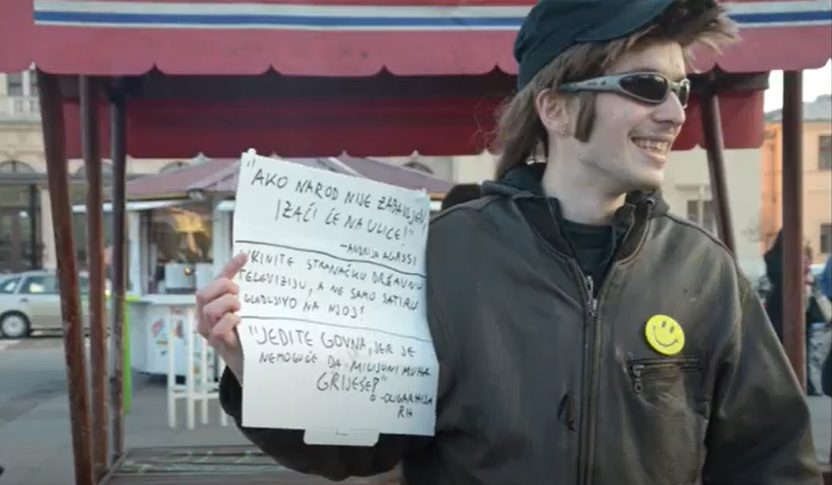 "AKO NAROD NIJE ZADOVOLJAN,
IZAĆI ĆE NA ULICE!"
-ANDRIJA AGASSI
UKINITE STRANAČKU DRŽAVNU
TELEVIZIJU, A NE SAMO SATIRU
NA NJOJ!
"JEDITE GOVNA, JER JE
NEMOGUĆE DA MILIJUNI MUHA
GRIJEŠE?"
-OLIGARHIJA
RH